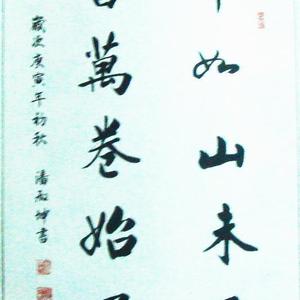 如山未
萬卷始
歲次庚寅年初秋 潘 坤書